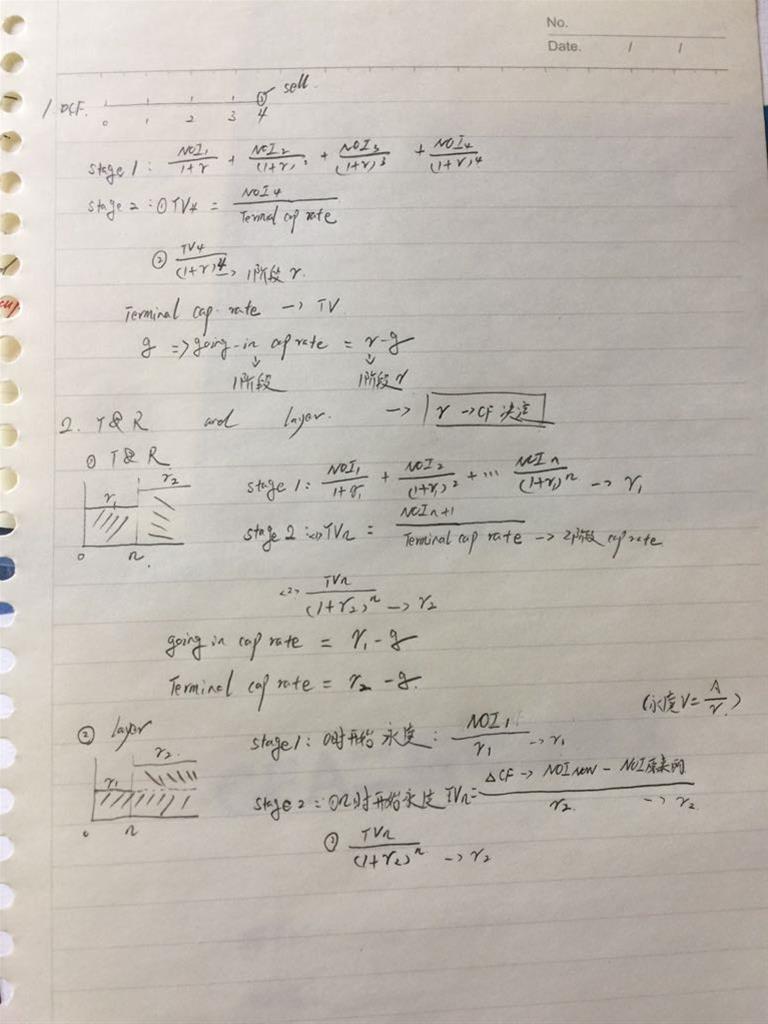 No.
Date. / /
1 DCF. 0 1 2 3 4 sell.
stage 1: NOI₁/(1+r) + NOI₂/(1+r)² + NOI₃/(1+r)³ + NOI₄/(1+r)⁴
stage 2: ① TV₄ = NOI₄/Termal cap rate
② TV₄/(1+r)⁴ → 1阶段 r.
Terminal cap rate → TV
g => going-in cap rate = r-g
↓ ↓
1阶段 1阶段 r
2. T&R and layer. → r → CF 决定
① T&R
r₁ r₂
0 n.
stage 1: NOI₁/(1+r₁) + NOI₂/(1+r₁)² + ... NOIₙ/(1+r₁)ⁿ → r₁
stage 2: <1> TVₙ = NOIₙ₊₁/Terminal cap rate → 2阶段 cap rate
<2> TVₙ/(1+r₂)ⁿ → r₂
going in cap rate = r₁-g
Terminal cap rate = r₂-g.
(永度V=A/r.)
② layer
r₁ r₂.
0 n
stage 1: 0时开始 永度: NOI₁/r₁ → r₁
stage 2: ① n时开始永度 TVₙ = (ΔCF → NOI new - NOI原来的)/r₂ → r₂
② TVₙ/(1+r₂)ⁿ → r₂